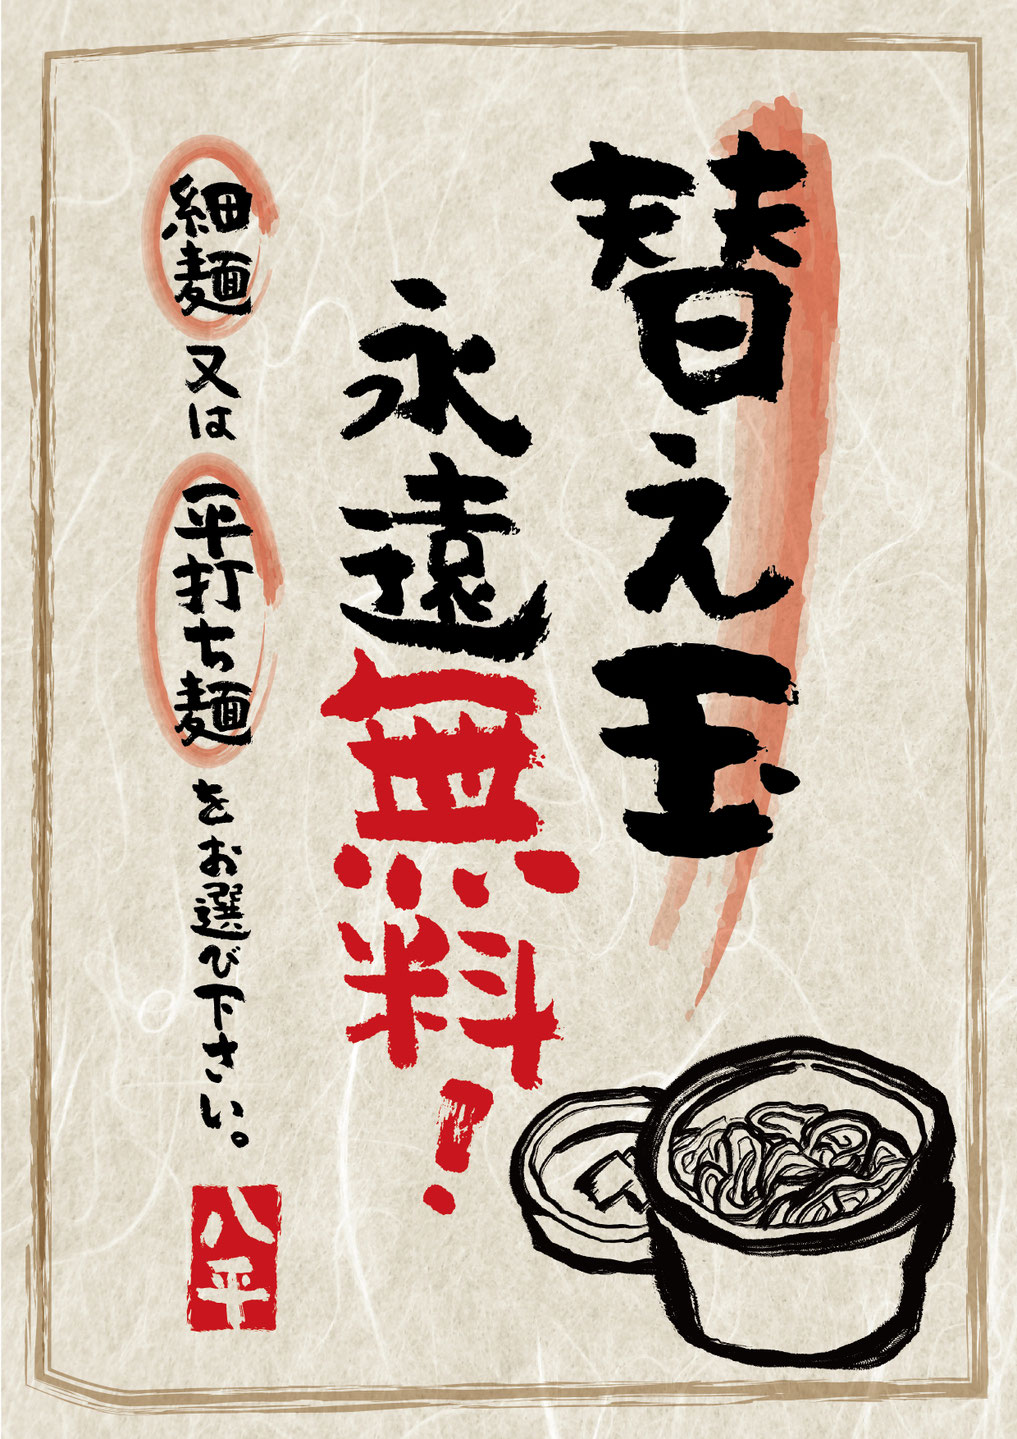 替え玉
永遠無料！
細麺又は平打ち麺をお選び下さい。
八平